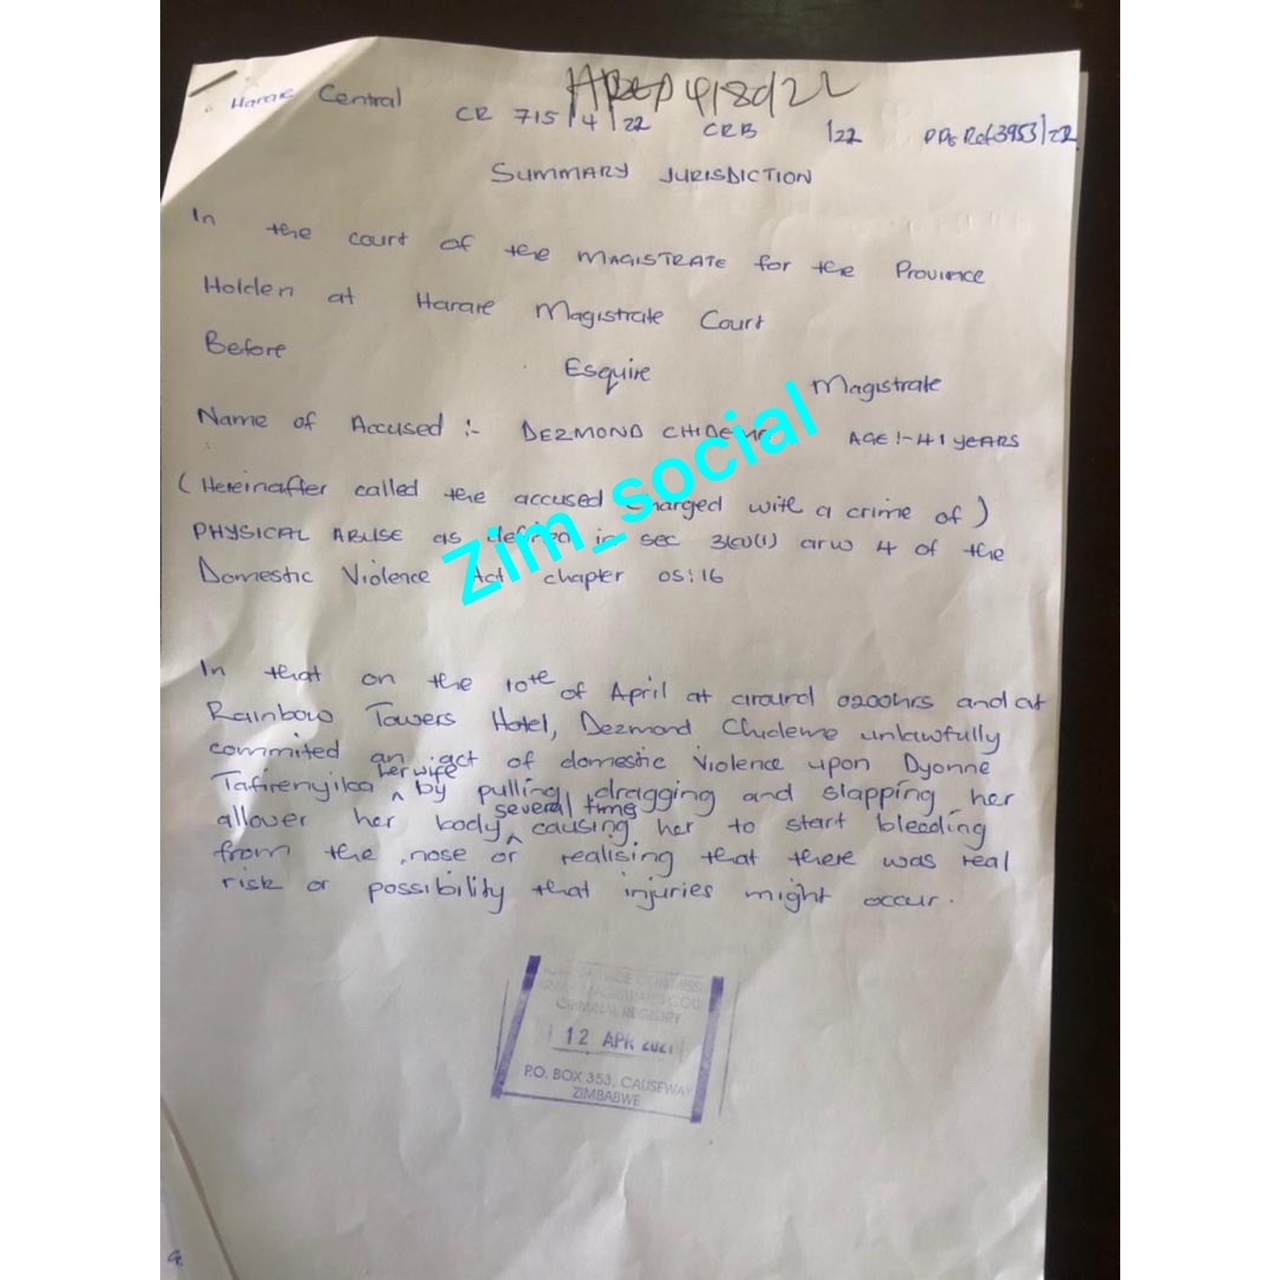 Harare Central
CR 715/4/22 CRB /22 PPs Ref 3953/22
SUMMARY JURISDICTION
In the court of the MAGISTRATE for the Province
Holden at Harare Magistrate Court
Before Esquire Magistrate
Name of Accused :- DEZMOND CHIDEME AGE :- 41 YEARS
(Hereinafter called the accused charged with a crime of)
PHYSICAL ABUSE as defined in sec arw 4 of the
Domestic Violence Act chapter 05:16
Zim_social
In that on the 10the of April at around 0200hrs and at
Rainbow Towers Hotel, Dezmond Chideme unlawfully
commited an act of domestic Violence upon Dyonne
Tafirenyika ^ her wife by pulling, dragging and slapping her
allover her body ^ several time causing her to start bleeding
from the nose or realising that there was real
risk or possibility that injuries might occur.
CRIMINAL REGISTRY
12 APR
P.O. BOX 353, CAUSEWAY
ZIMBABWE